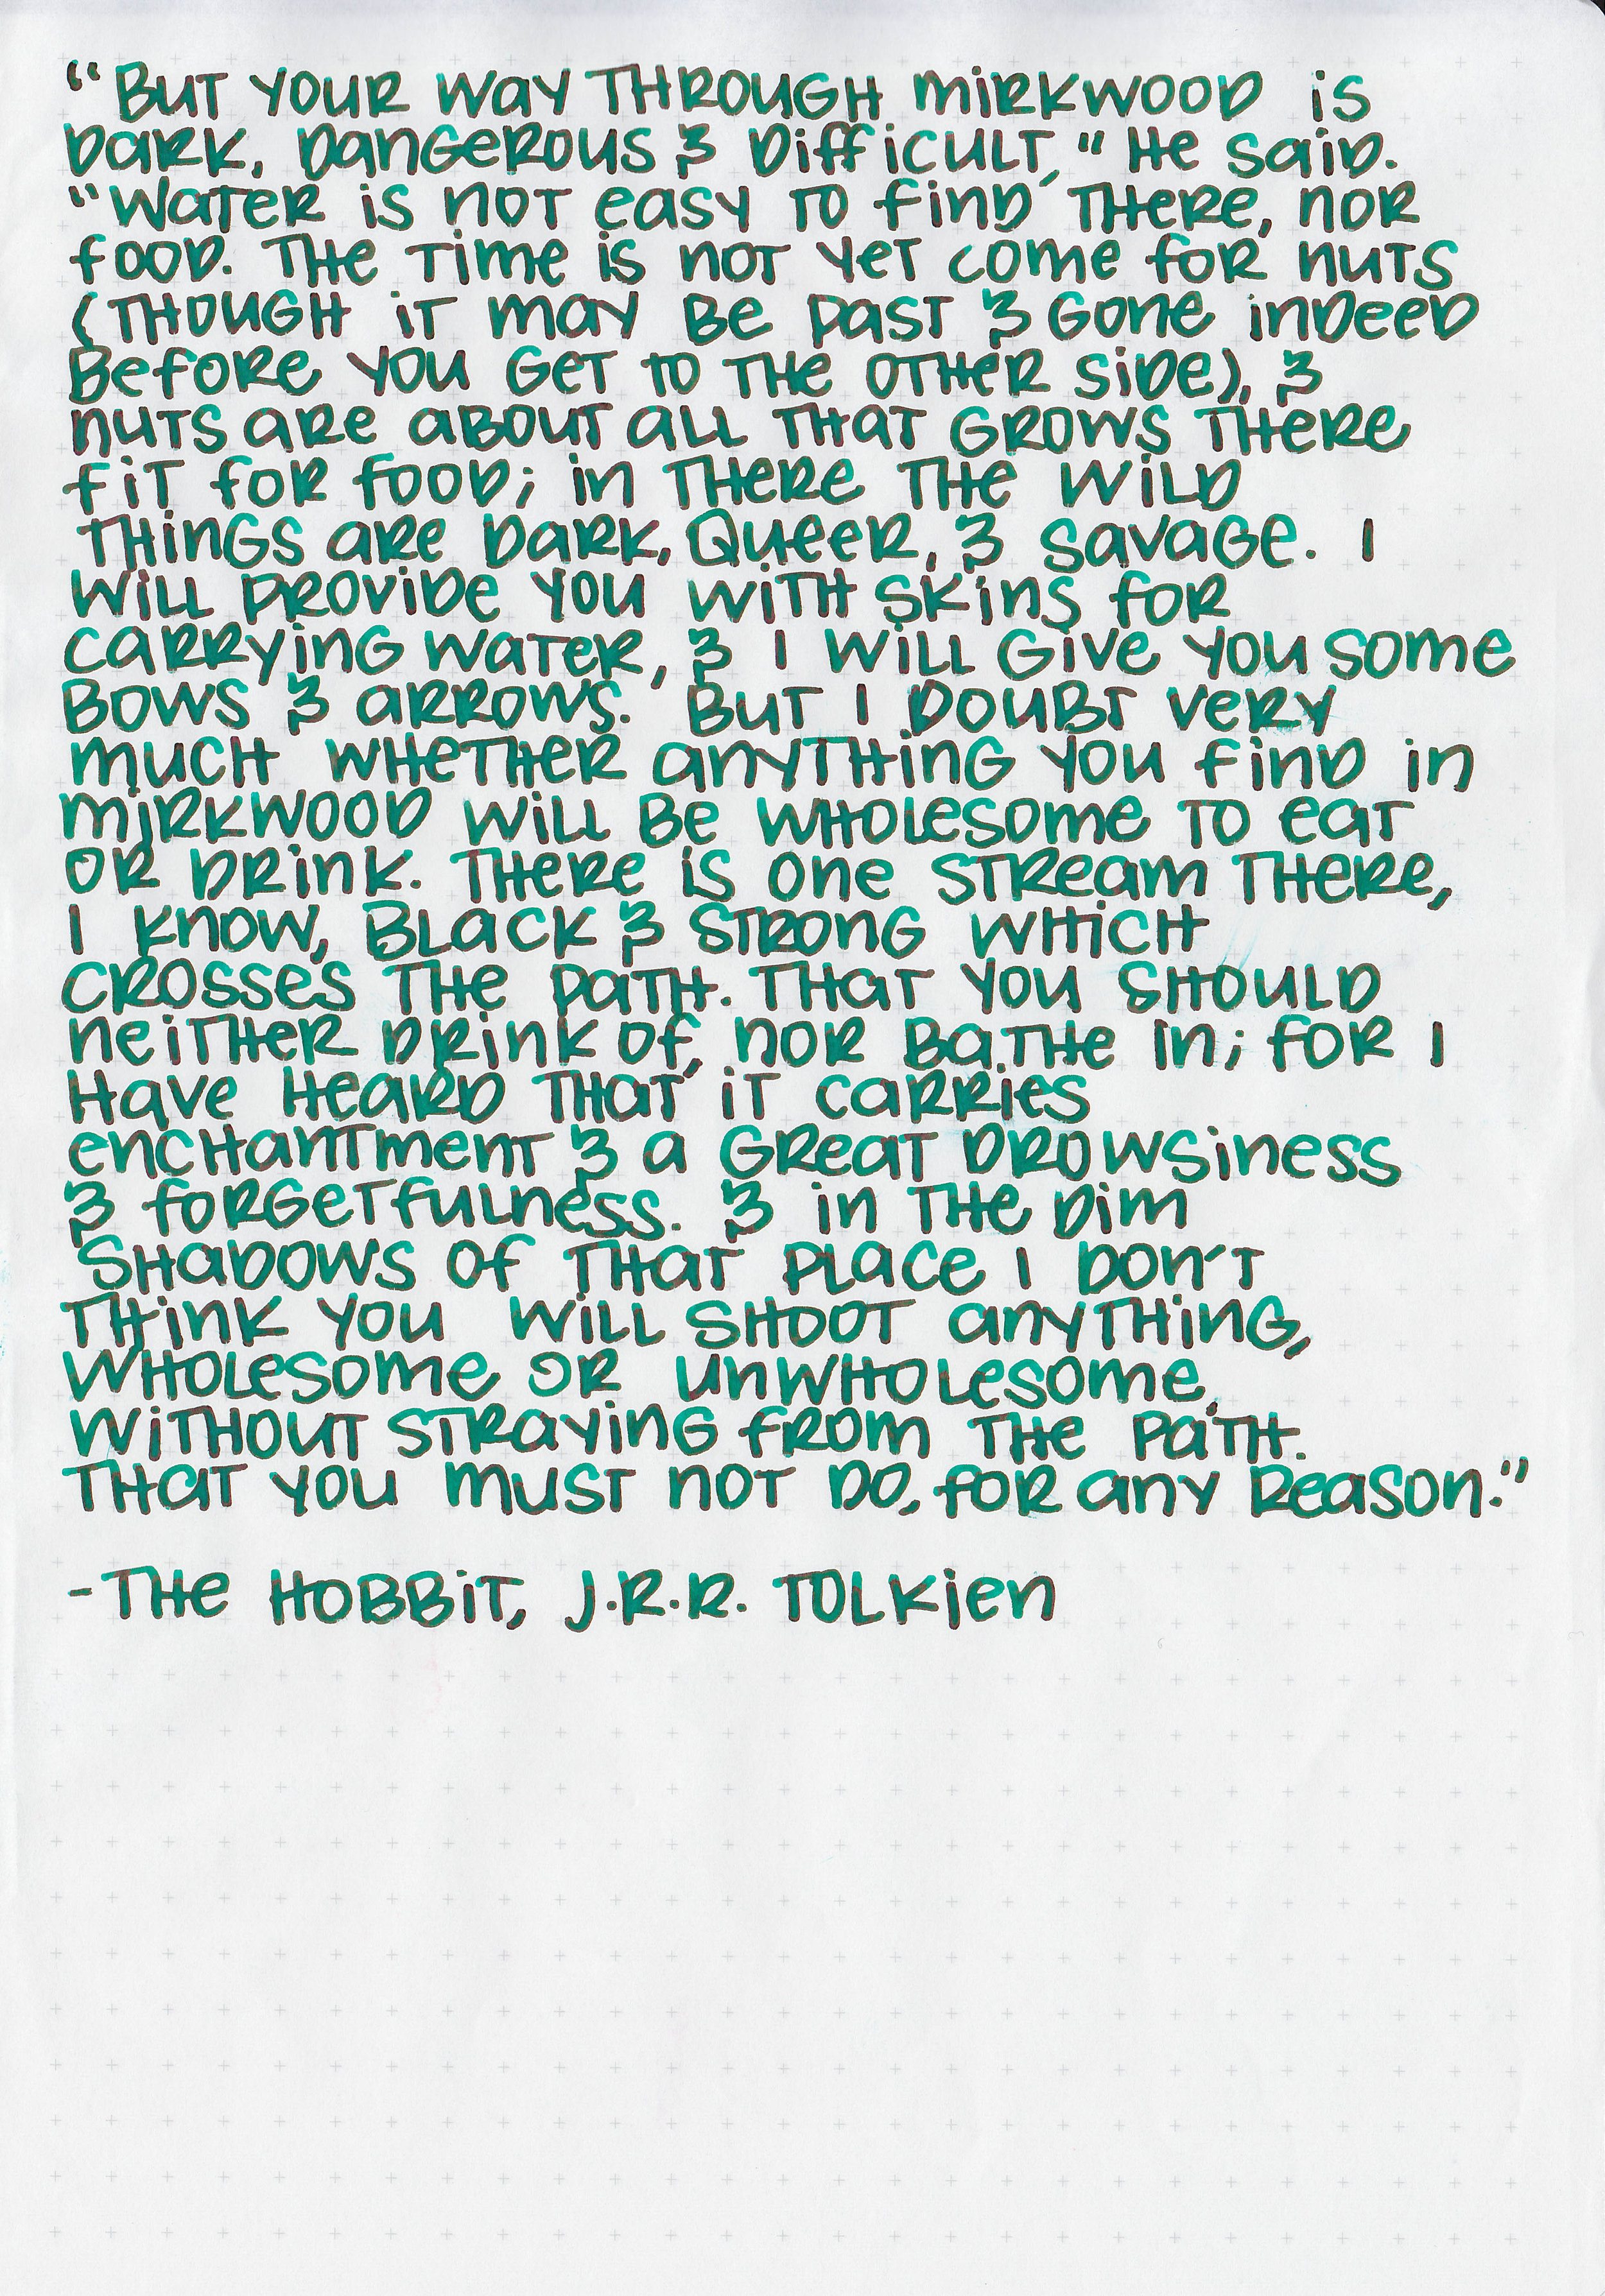 "But your way through Mirkwood is
dark, dangerous & difficult," he said.
"Water is not easy to find there, nor
food. The time is not yet come for nuts
(though it may be past & gone indeed
before you get to the other side), &
nuts are about all that grows there
fit for food; in there the wild
things are dark, queer, & savage. I
will provide you with skins for
carrying water, & I will give you some
bows & arrows. But I doubt very
much whether anything you find in
Mirkwood will be wholesome to eat
or drink. There is one stream there,
I know, black & strong which
crosses the path. That you should
neither drink of, nor bathe in; for I
have heard that it carries
enchantment & a great drowsiness
& forgetfulness. & in the dim
shadows of that place I don't
think you will shoot anything,
wholesome or unwholesome,
without straying from the path.
That you must not do, for any reason."
-The Hobbit, J.R.R. Tolkien